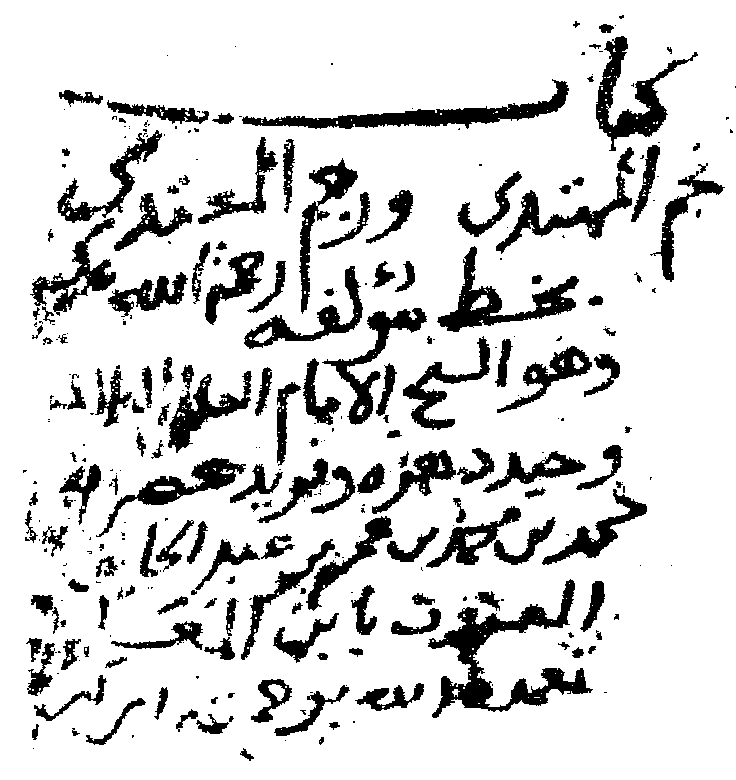 كتاب
نجم المهتدي ورجم المعتدي
بخط مؤلفه رحمه الله
وهو الشيخ الامام العلامة
وحيد دهره وفريد عصره
محمد بن محمد بن عبد
المعروف بابن المعلم
تغمده الله برحمته